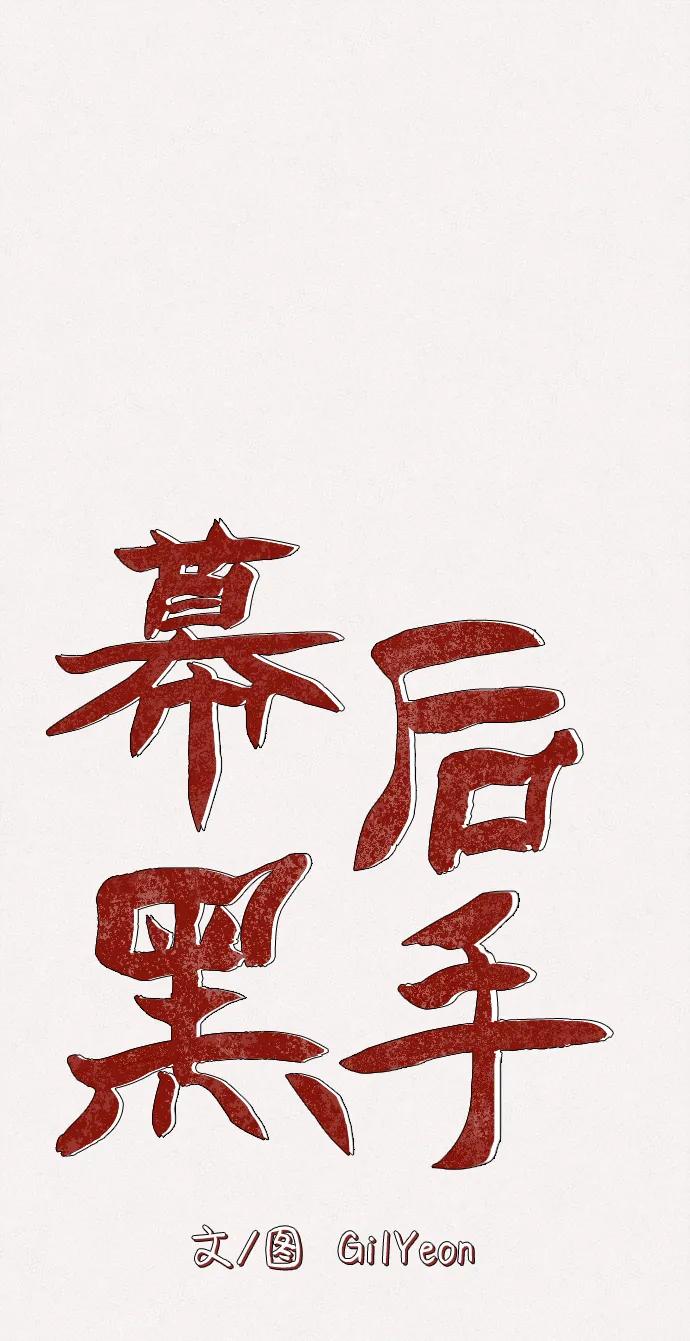 幕后
黑手
文/图 GilYeon